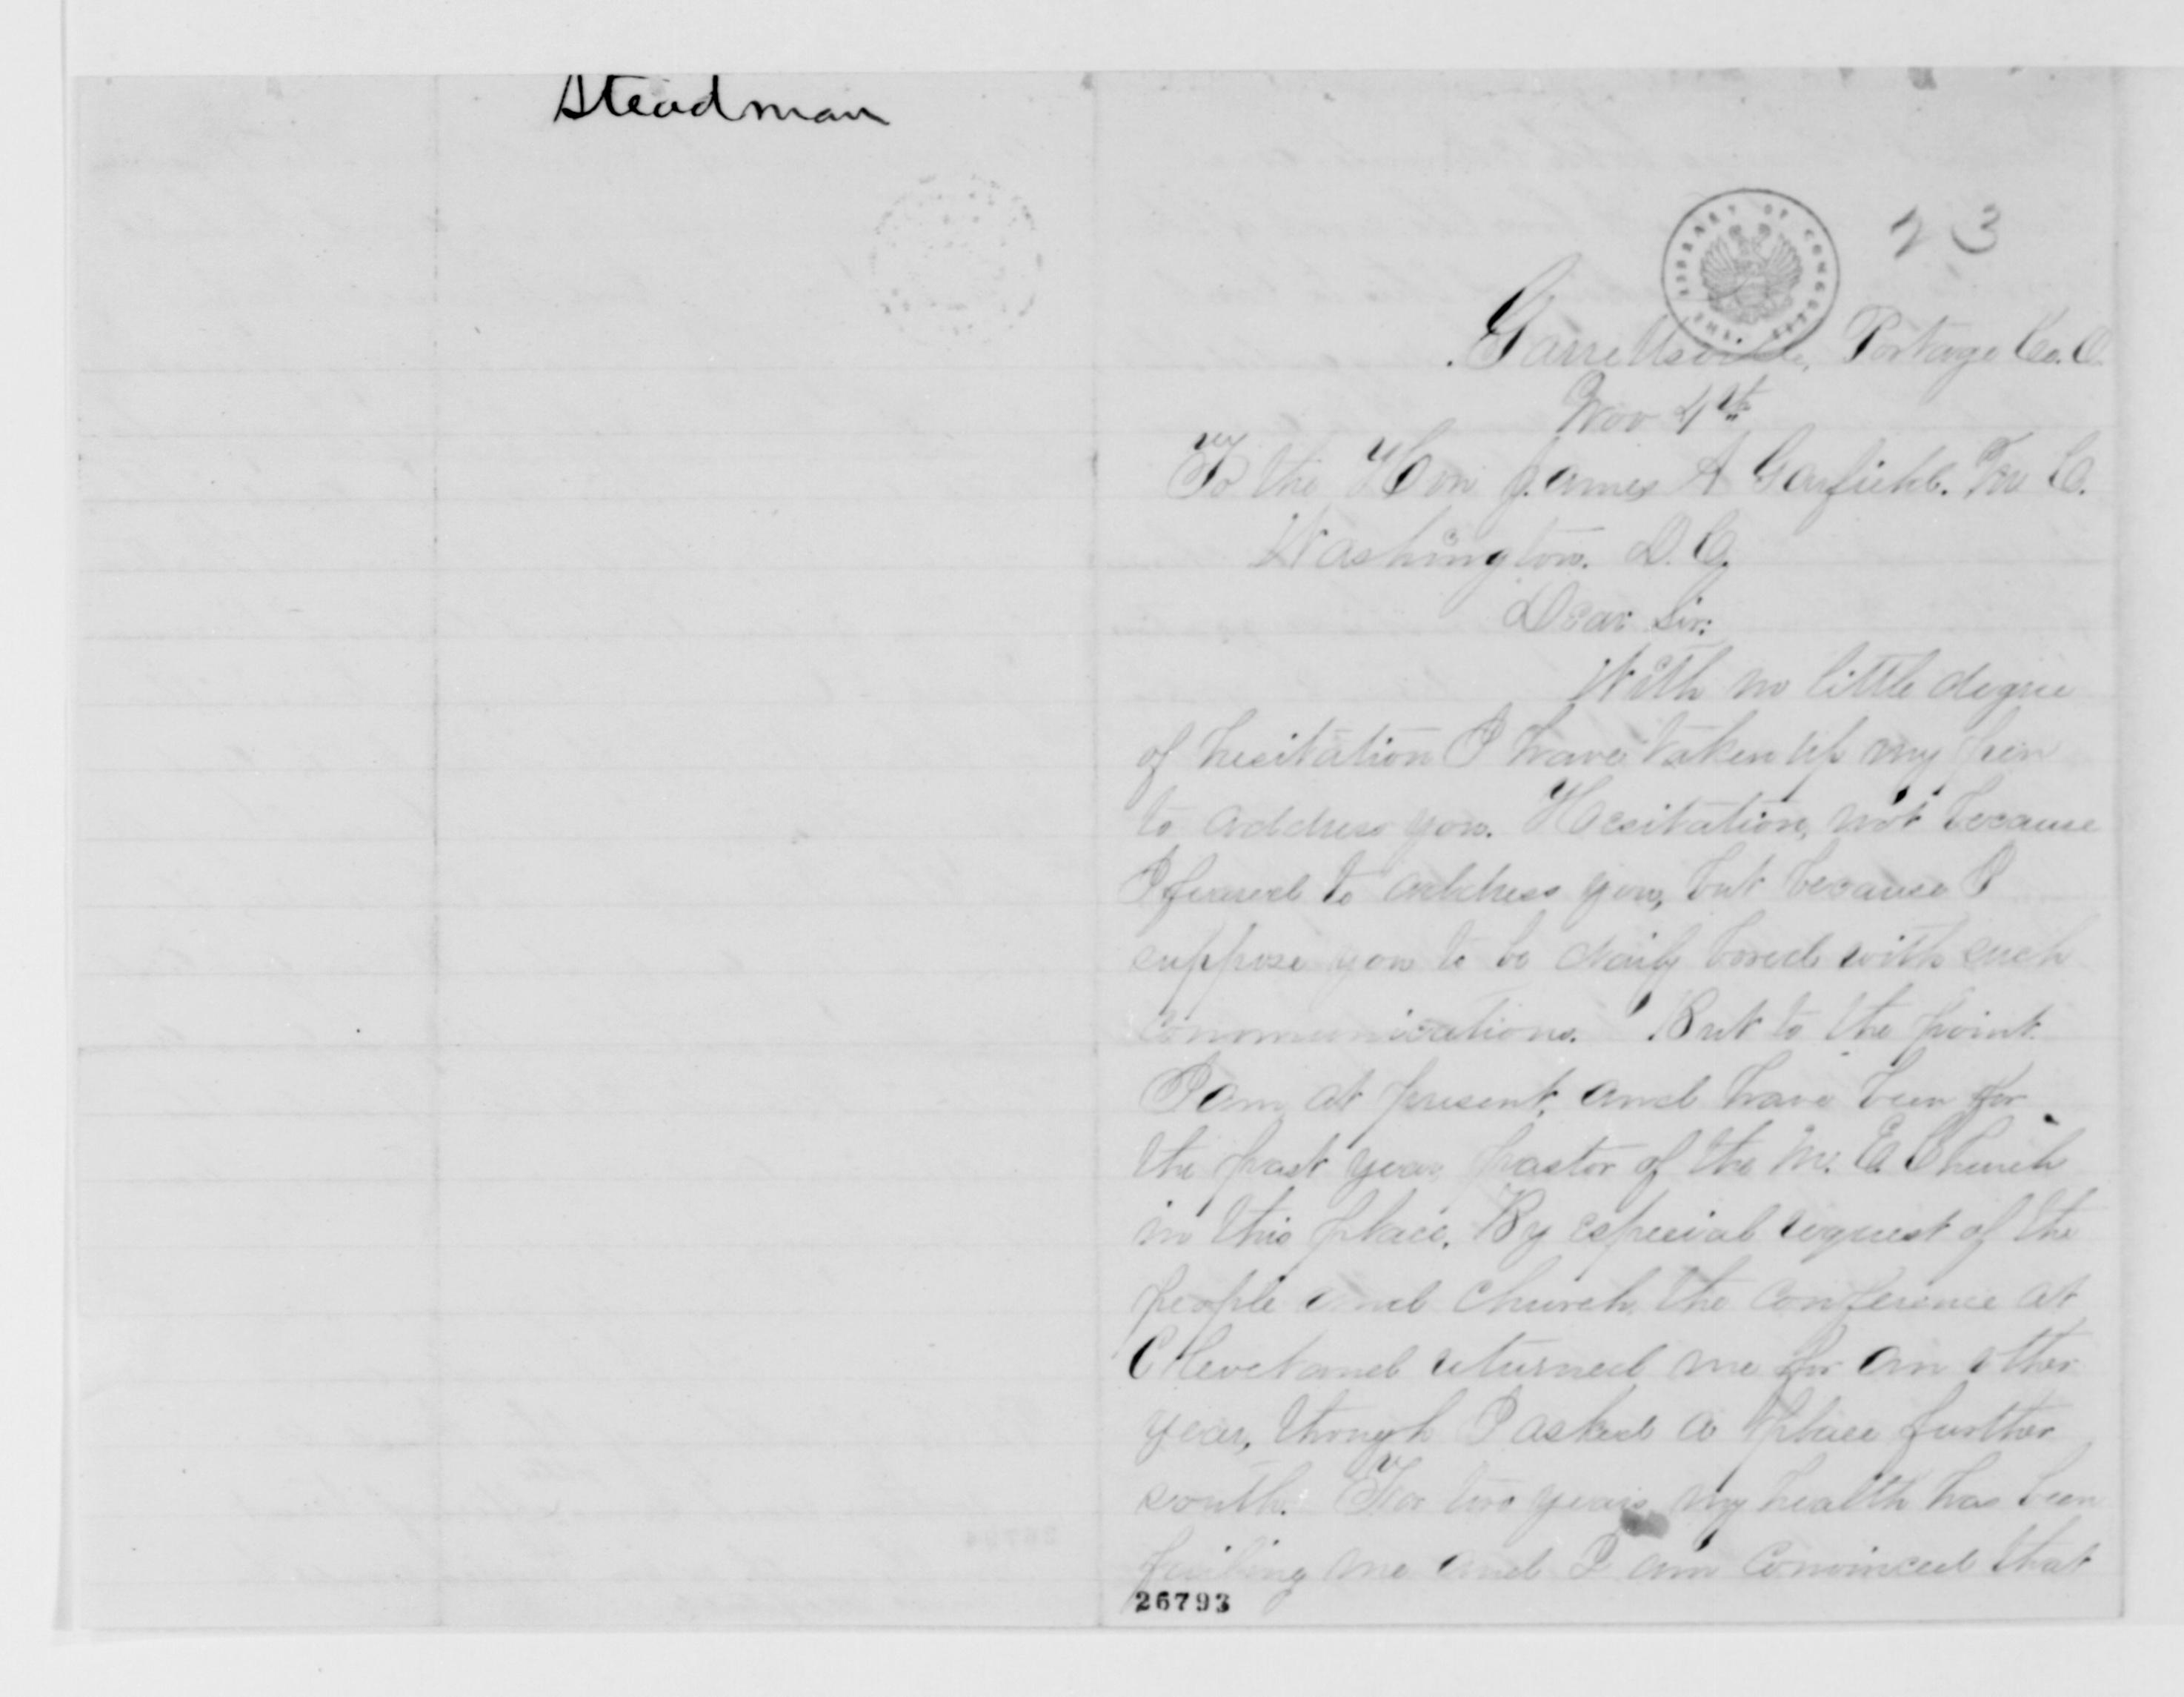 Steadman
THE LIBRARY OF CONGRESS
23
Garrettsville, Portage Co. O.
Nov 4th
To the Hon James A Garfield. M. C.
Washington. D. C.
Dear Sir:
With no little degree
of hesitation I have taken up my pen
to address you. Hesitation, not because
I feared to address you, but because I
suppose you to be daily bored with such
communications. But to the point.
I am at present, and have been for
the past year, pastor of the M. E. Church
in this place. By especial request of the
people and church, the conference at
Cleveland returned me for an other
year, though I asked a place further
south. For two years my health has been
failing me and I am convinced that
26793